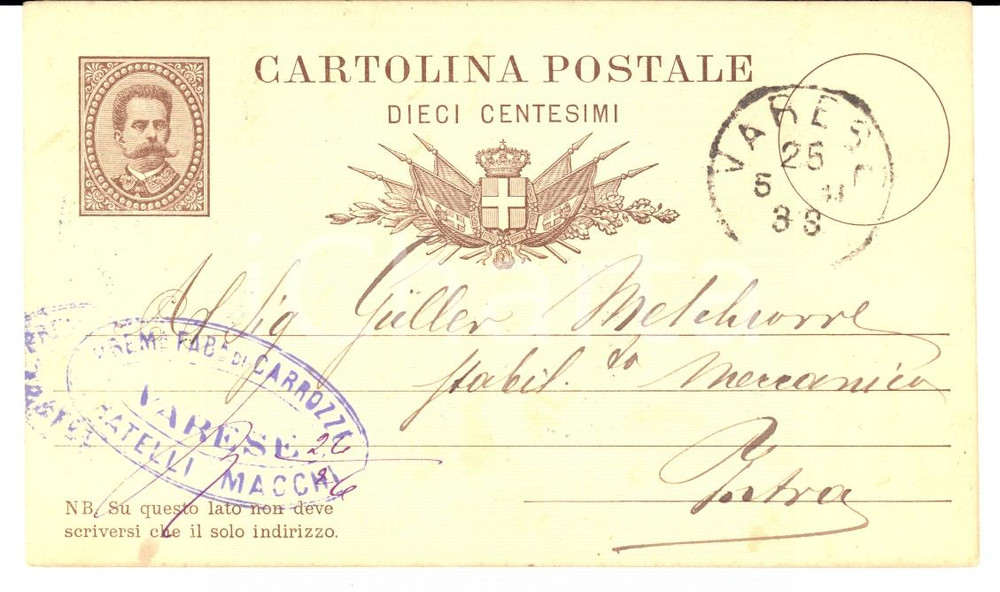 CARTOLINA POSTALE
DIECI CENTESIMI
VARESE
25
5
88
Al Sig Güller Melchiorre
Stabil.to Meccanico
Intra
PREMa FABa DI CARROZZE
VARESE
FRATELLI MACCHI
26
26
NB. Su questo lato non deve
scriversi che il solo indirizzo.